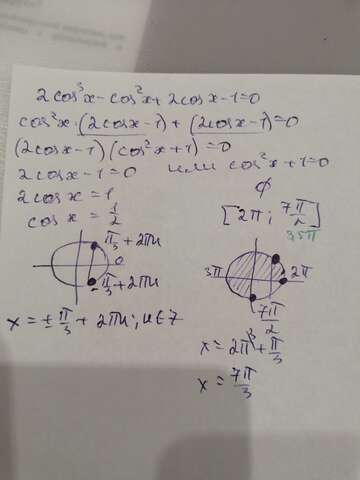 2cos³x - cos²x + 2cosx - 1 = 0
cos²x · (2cosx - 1) + (2cosx - 1) = 0
(2cosx - 1)(cos²x + 1) = 0
2cosx - 1 = 0 или cos²x + 1 = 0
2cosx = 1 ∅
cosx = 1/2 [2π; 7π/2]
3,5π
π/3 + 2πn
0
- π/3 + 2πn
3π 2π
7π/2
x = ± π/3 + 2πn; n ∈ Z
x = 2π + π/3
x = 7π/3